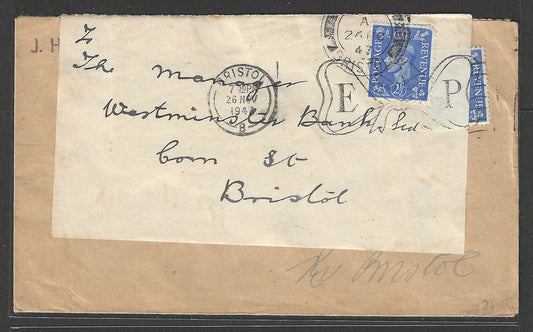 J. H
To
The Manager
Westminster Bank Ltd
Corn St
Bristol
BRISTOL
7 PM
26 NOV
1947
8
A
26
47
E P
POSTAGE REVENUE
2½
REVENUE
Bristol